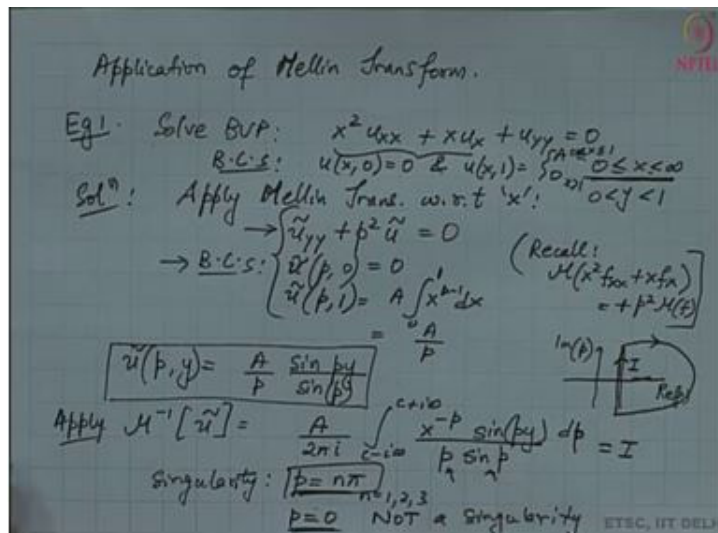 NPTEL
Application of Mellin Transform.
Eg1. Solve BVP: x² u_xx + x u_x + u_yy = 0
B.C.s: u(x, 0) = 0 & u(x, 1) = { A 0≤x≤1 0 x>1 0 ≤ x < ∞
0 < y < 1
Solⁿ: Apply Mellin Trans. w.r.t 'x':
→ ũ_yy + p² ũ = 0
→ B.C.s: ũ(p, 0) = 0
(Recall:
ũ(p, 1) = A ∫₀¹ x^{p-1} dx
M(x² f_xx + x f_x) = + p² M(f)
= A/p
ũ(p, y) = A/p sin py / sin(p)
Im(p) I Re(p)
Apply M⁻¹[ũ] = A/2πi ∫_{c-i∞}^{c+i∞} x^{-p} sin(py) / p sin p dp = I
Singularity: p = nπ n=1,2,3
p=0 NOT a singularity
ETSC, IIT DELHI